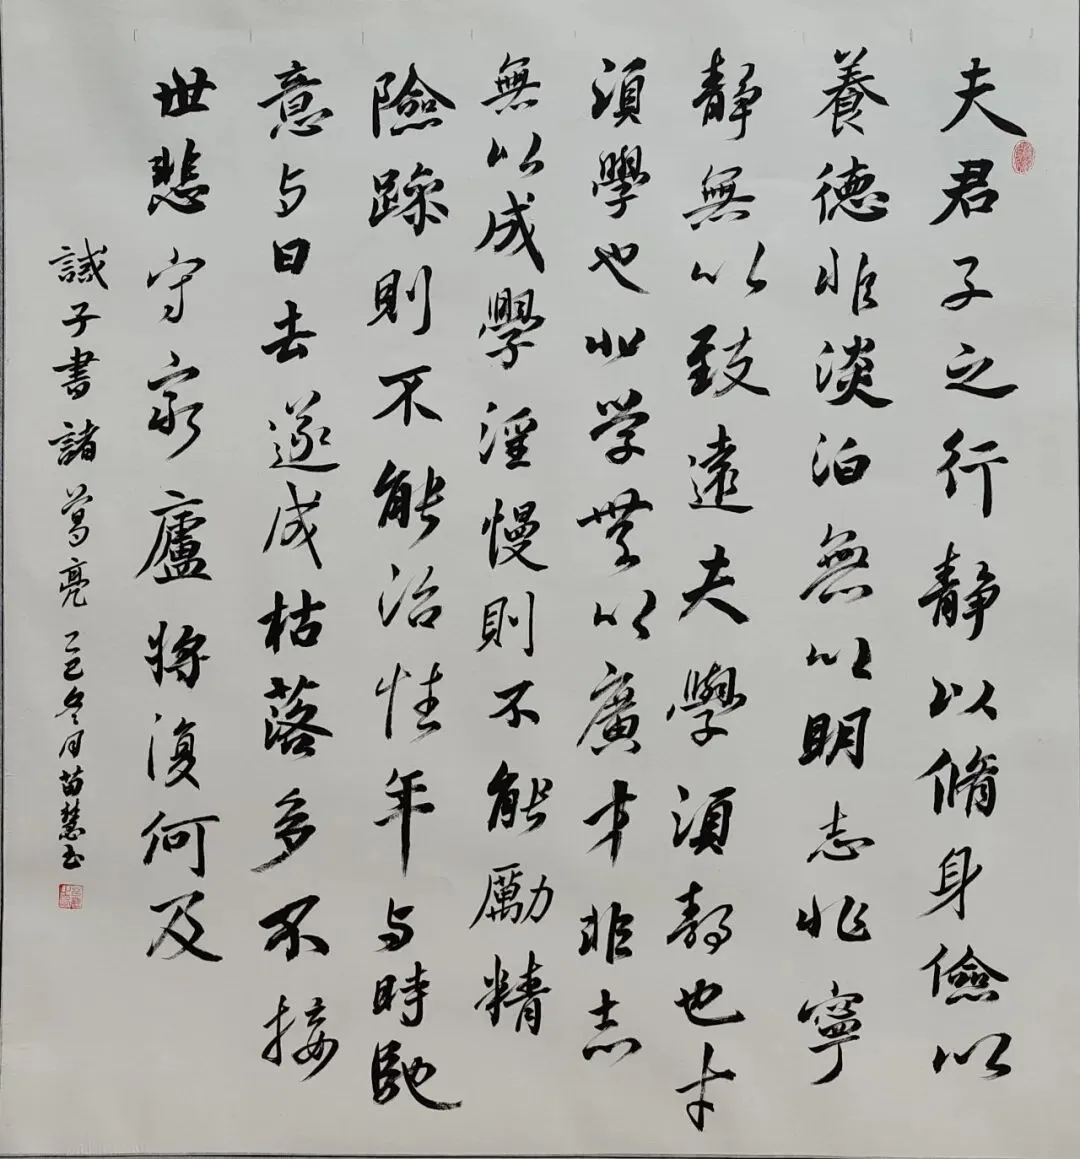 夫君子之行靜以脩身儉以
養德非淡泊無以明志非寧
靜無以致遠夫學須靜也才
須學也非学無以廣才非志
無以成學淫慢則不能勵精
險躁則不能治性年与時馳
意与日去遂成枯落多不接
世悲守窮廬將復何及
誡子書諸葛亮乙巳冬月苗慧书